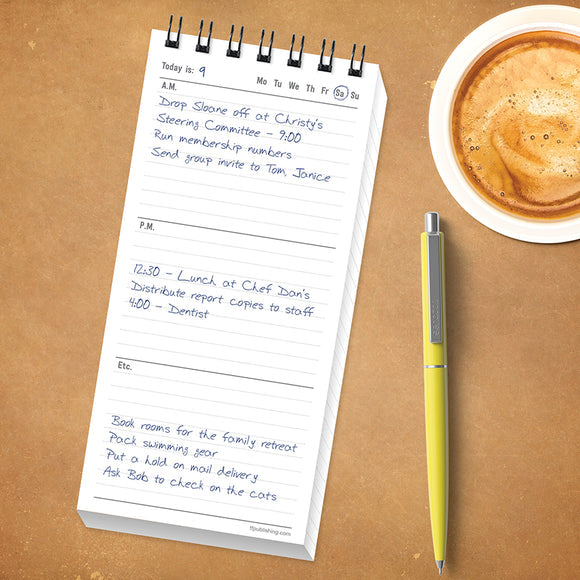 Today is: 9 Mo Tu We Th Fr Sa Su
A.M.
Drop Sloane off at Christy's
Steering Committee – 9:00
Run membership numbers
Send group invite to Tom, Janice
P.M.
12:30 – Lunch at Chef Dan's
Distribute report copies to staff
4:00 – Dentist
Etc.
Book rooms for the family retreat
Pack swimming gear
Put a hold on mail delivery
Ask Bob to check on the cats
tfpublishing.com